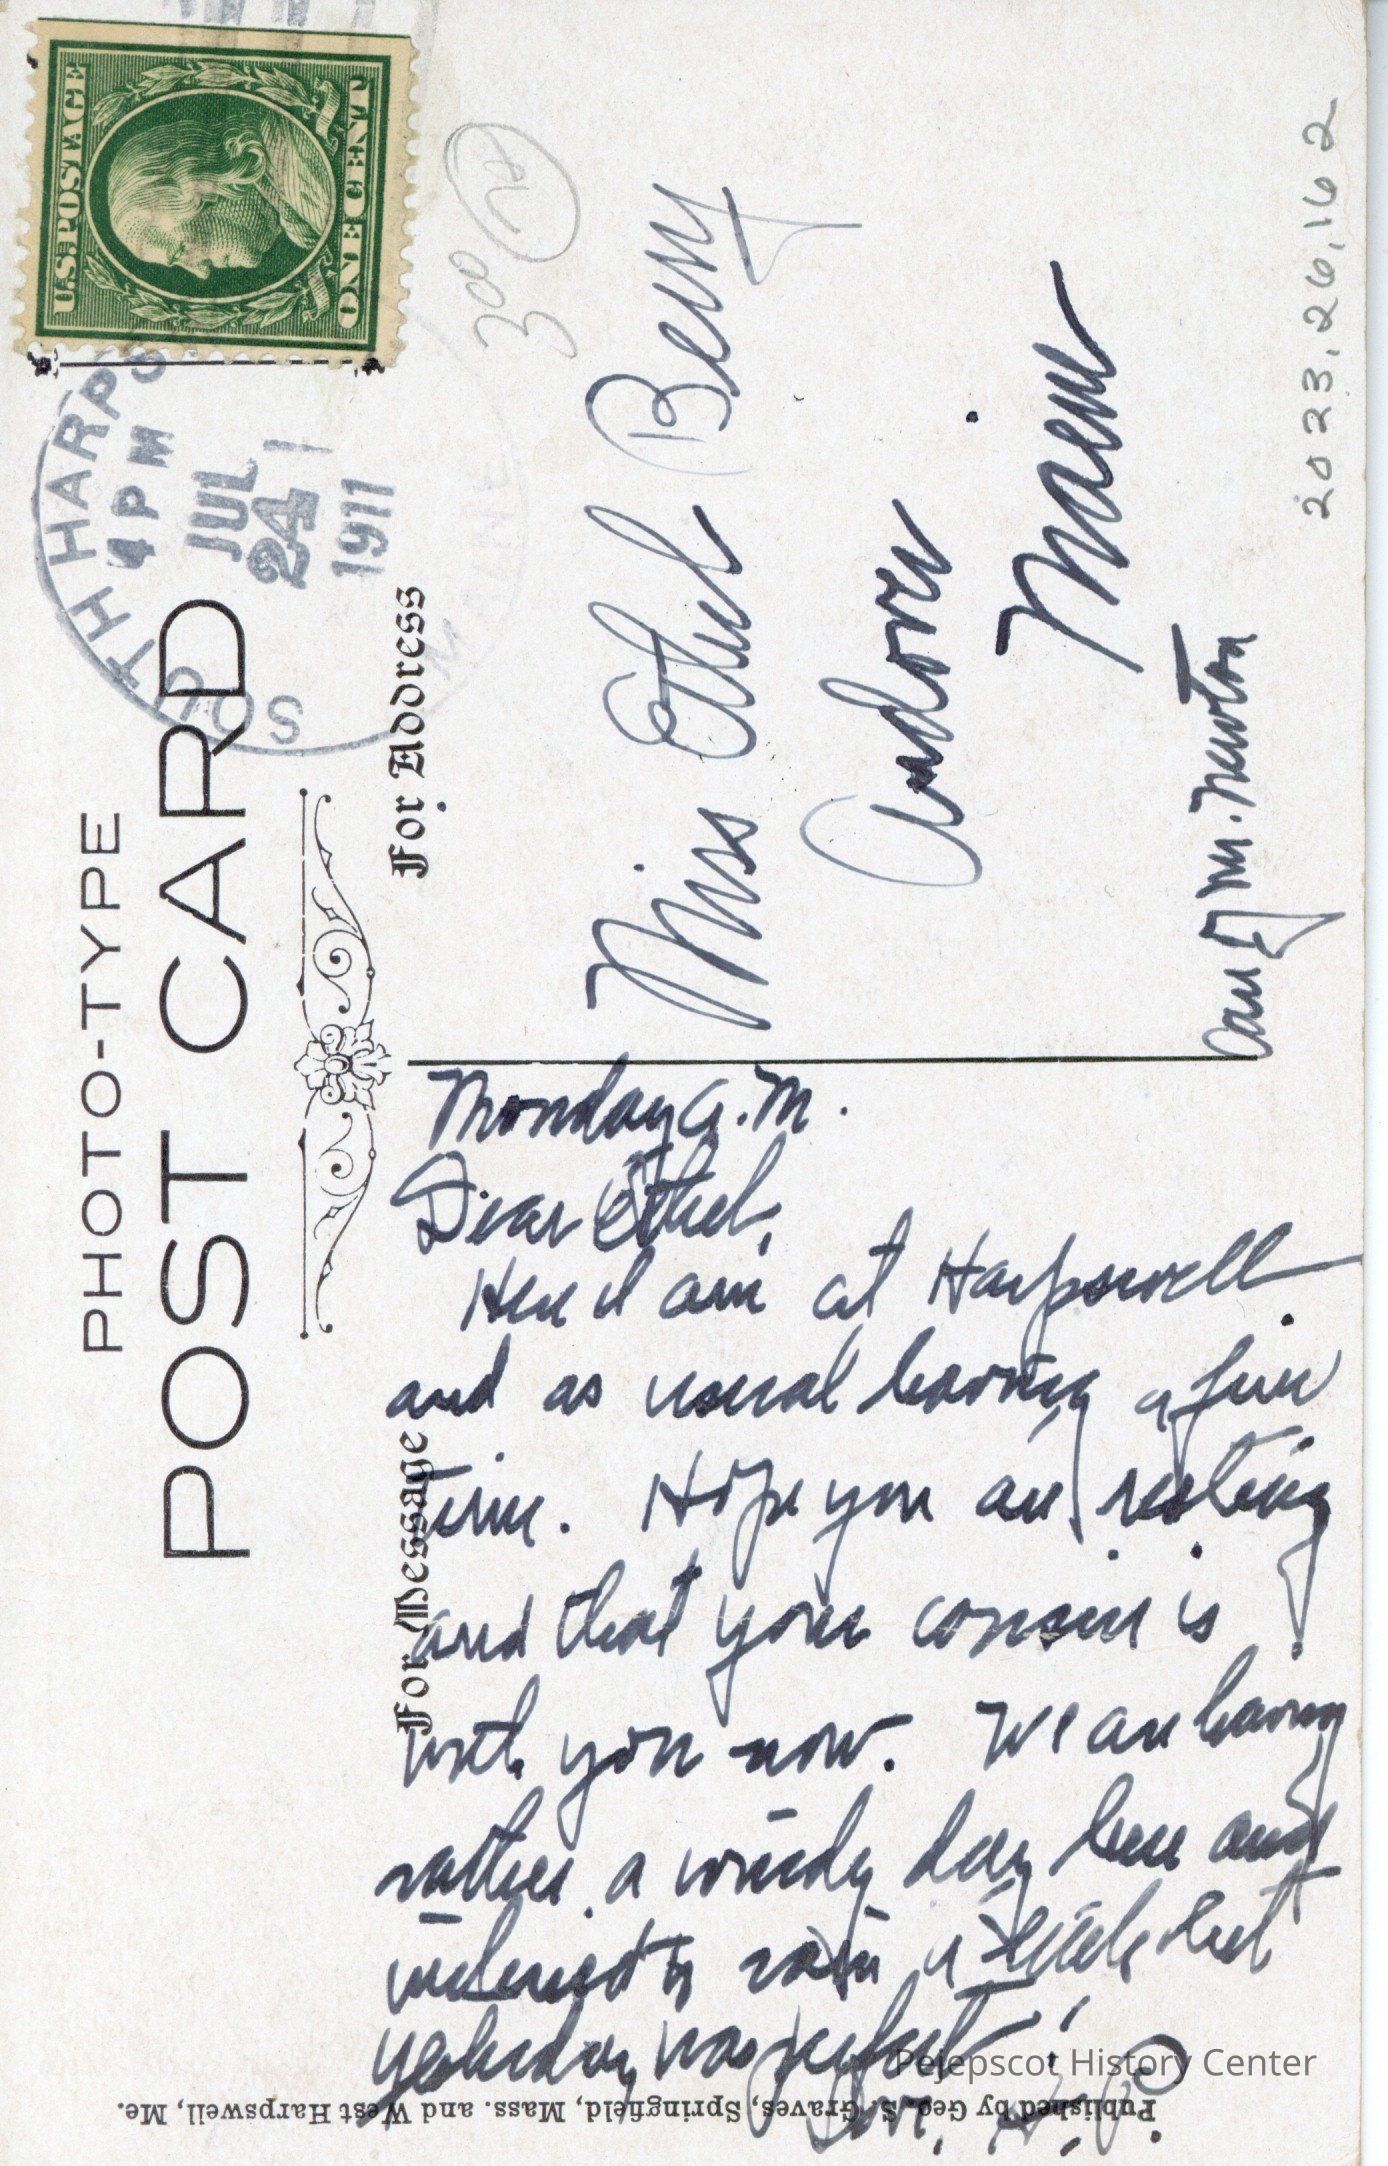 PHOTO-TYPE
POST CARD
For Address
For Message
U.S. POSTAGE
ONE CENT
SOUTH HARPS
4 PM
JUL
24
1911
300
Miss Ethel Berry
Andover
Maine
Care of M. Newton
2023.26.162
Monday A.M.
Dear Ethel,
Here I am at Harpswell
and as usual having a fine
time. Hope you are resting
and that your cousin is
with you now. We are having
rather a windy day here and
inclined to rain a little but
yesterday was perfect.
Published by Geo. S. Graves, Springfield, Mass. and West Harpswell, Me.
Pejepscot History Center